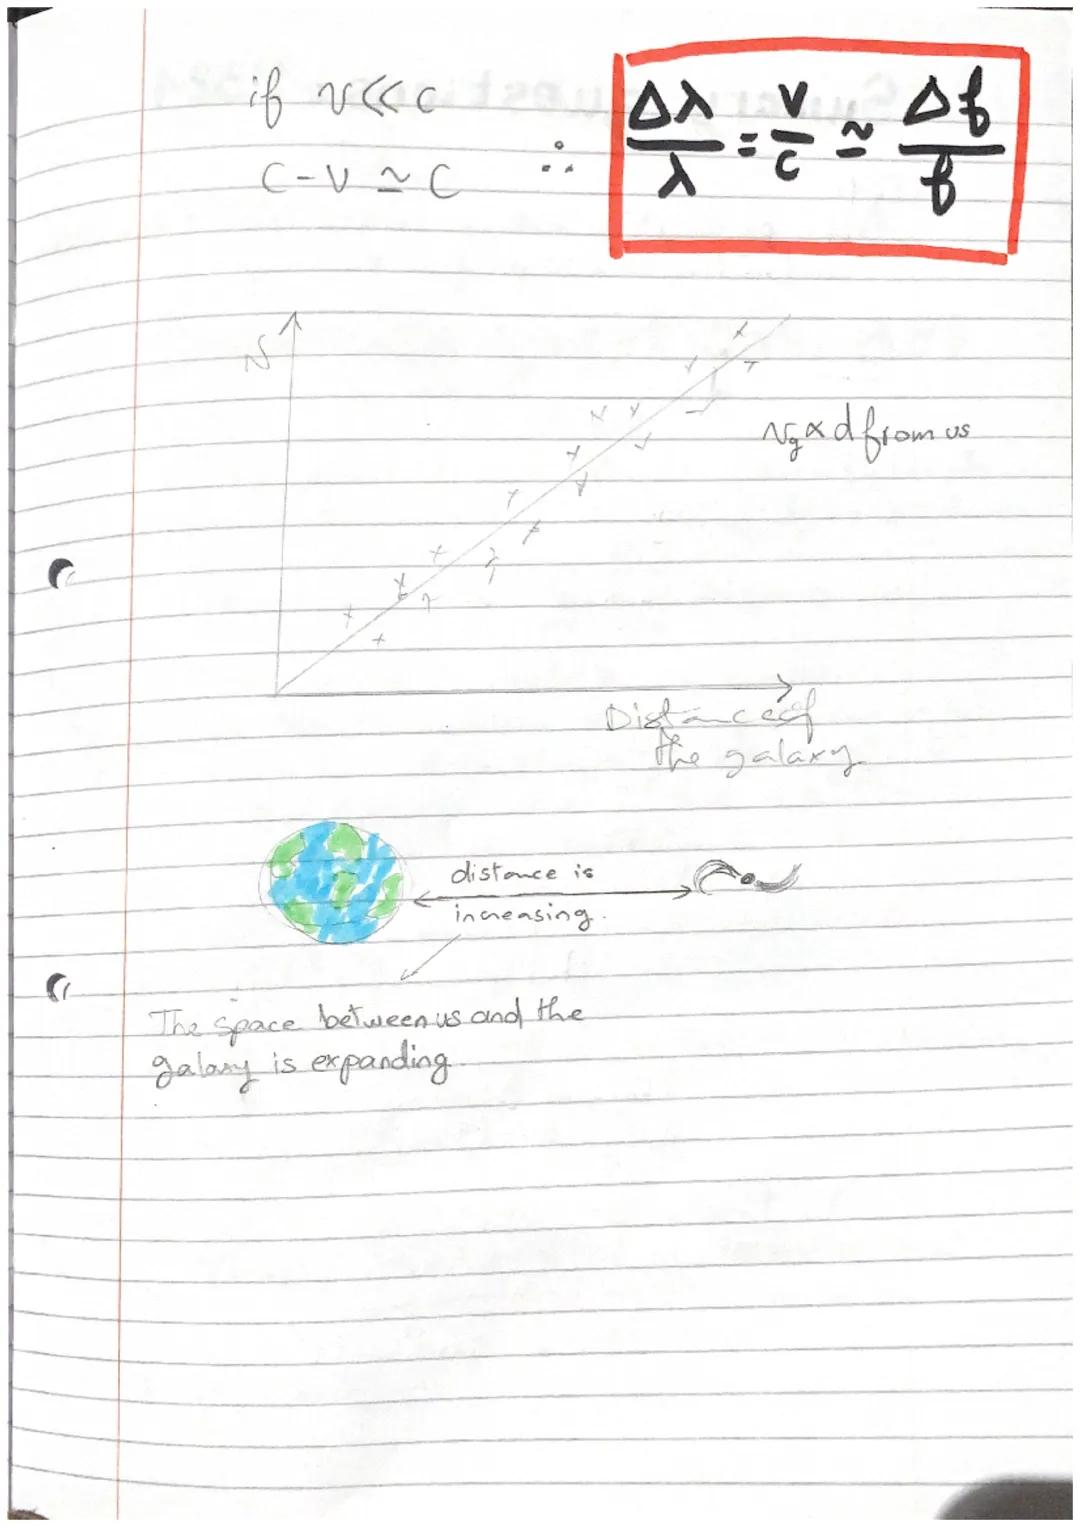 if v<<c
c-v ≃ c ∴ Δλ/λ = v/c ≃ Δf/f
v
vg ∝ d from us
Distance of
the galaxy
distance is
increasing.
The space between us and the
galaxy is expanding.